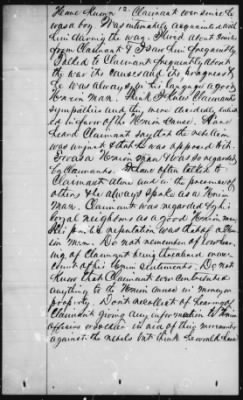 Have known Claimant ever since he
was a boy. Was intimately acquainted with
him during the war. Lived about 3 miles
from Claimant & I saw him frequently
Talked to Claimant frequently about
the war its causes and its progress &
he was always for his language a good
Union man. Think I knew Claimants
sympathies and they were decidedly
in favor of the Union cause. Have
heard Claimant say that the rebellion
was unjust & that he was opposed to it.
I was a Union man & was so regarded
by Claimant. I have often talked to
Claimant alone and in the presence of
others & he always spoke as a Union
man. Claimant was regarded by his
loyal neighbors as a good Union man
His public reputation was that of a Un-
ion man. Do not remember of ever hear-
ing of Claimant being threatened on ac-
count of his Union sentiments. Do not
know that Claimant ever contributed
anything to the Union cause in money or
property. Don't recollect of hearing of
Claimant giving any information to Union
officers or soldier in aid of their movements
against the rebels but think he would have